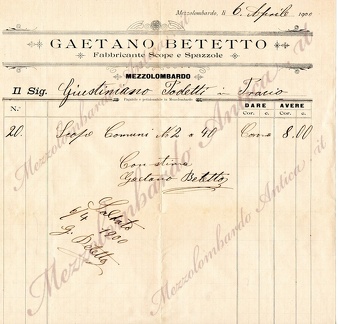 Mezzolombardo, li 6. Aprile 1900
GAETANO BETETTO
Fabbricante Scope e Spazzole
MEZZOLOMBARDO
Il Sig. Giustiniano Tadetti in Tracio
Pagabile e pronunciabile in Mezzolombardo
N.: DARE AVERE
Cor. c. Cor. c.
20. Scope Comuni No 2 a 40 Corone 8.00
Con stima
Gaetano Betetto
Saldato
6/4 1900
G. Betetto
Mezzolombardo Antica .it